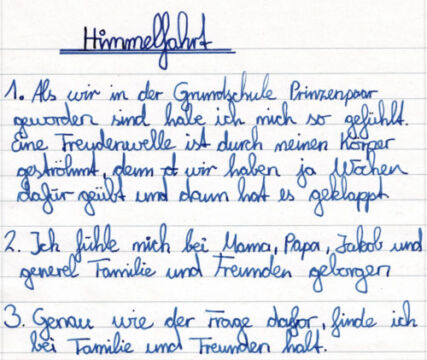 Himmelfahrt
1. Als wir in der Grundschule Prinzenpaar
geworden sind habe ich mich so gefühlt.
Eine Freudenwelle ist durch meinen Körper
geströhmt, denn wir haben ja Wochen
dafür geübt und dann hat es geklappt
2. Ich fühle mich bei Mama, Papa, Jakob und
generel Familie und Freunden geborgen
3. Genau wie der Frage dafor, finde ich
bei Familie und Freunden halt.